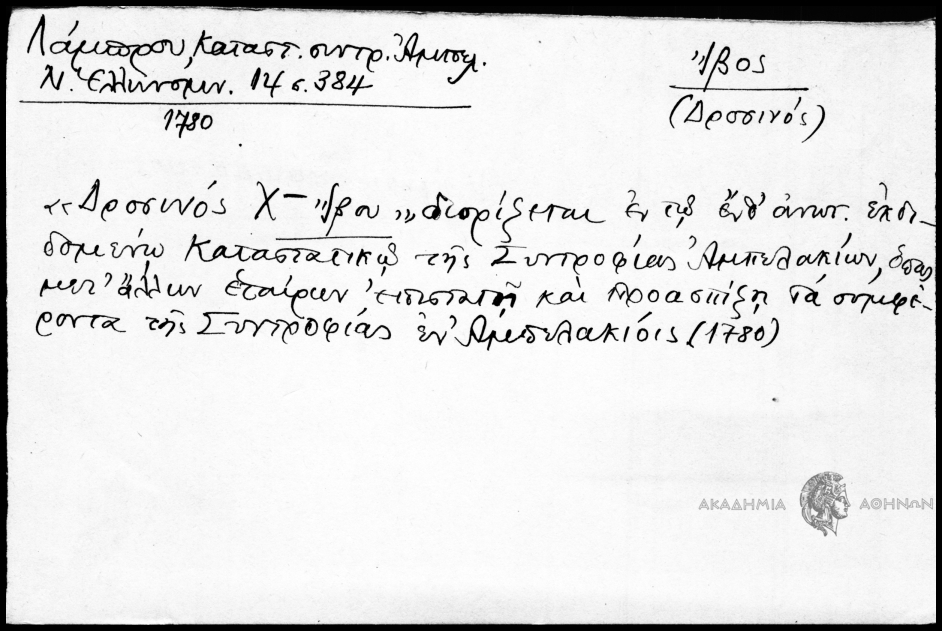 Λάμπρου, Καταστ. συντρ. Ἀμπελ.
Ν. Ἑλληνομν. 14 σ. 384
1780
Ἴβος
(Δροσινός)
«Δροσινός Χ– Ἴβου» διορίζεται ἐν τῷ ἐνθ' ἀνωτ. ἐκδι-
δομένῳ Καταστατικῷ τῆς Συντροφίας Ἀμπελακίων, ὅπως
μετ' ἄλλων ἑταίρων ἐπιστατῇ καὶ προασπίζῃ τά συμφέ-
ροντα τῆς Συντροφίας ἐν Ἀμπελακίοις (1780)
ΑΚΑΔΗΜΙΑ ΑΘΗΝΩΝ